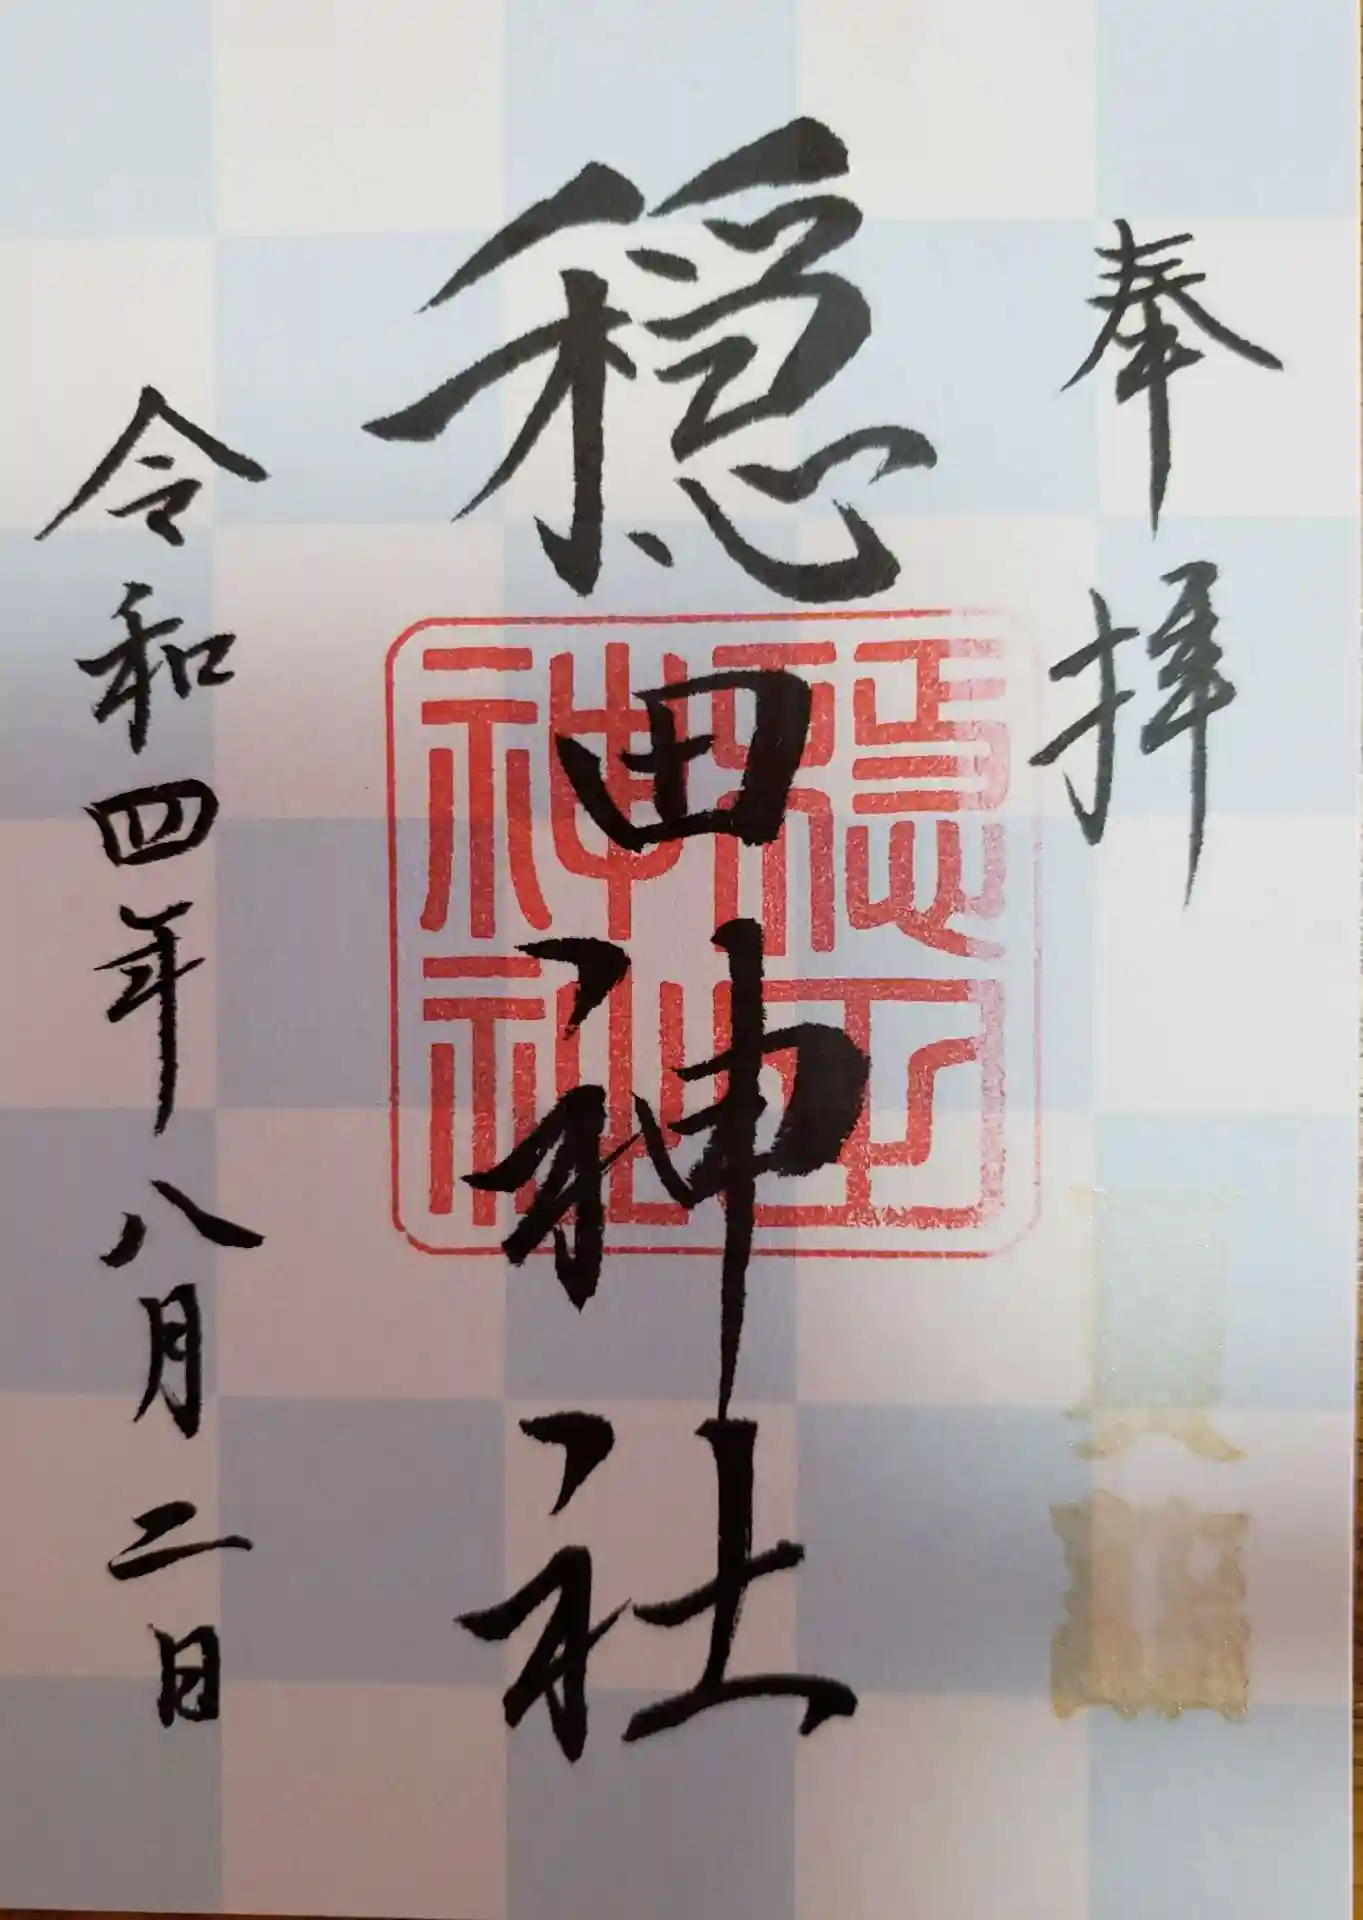 奉拝
穏田神社
穏田
神社
令和四年八月二日